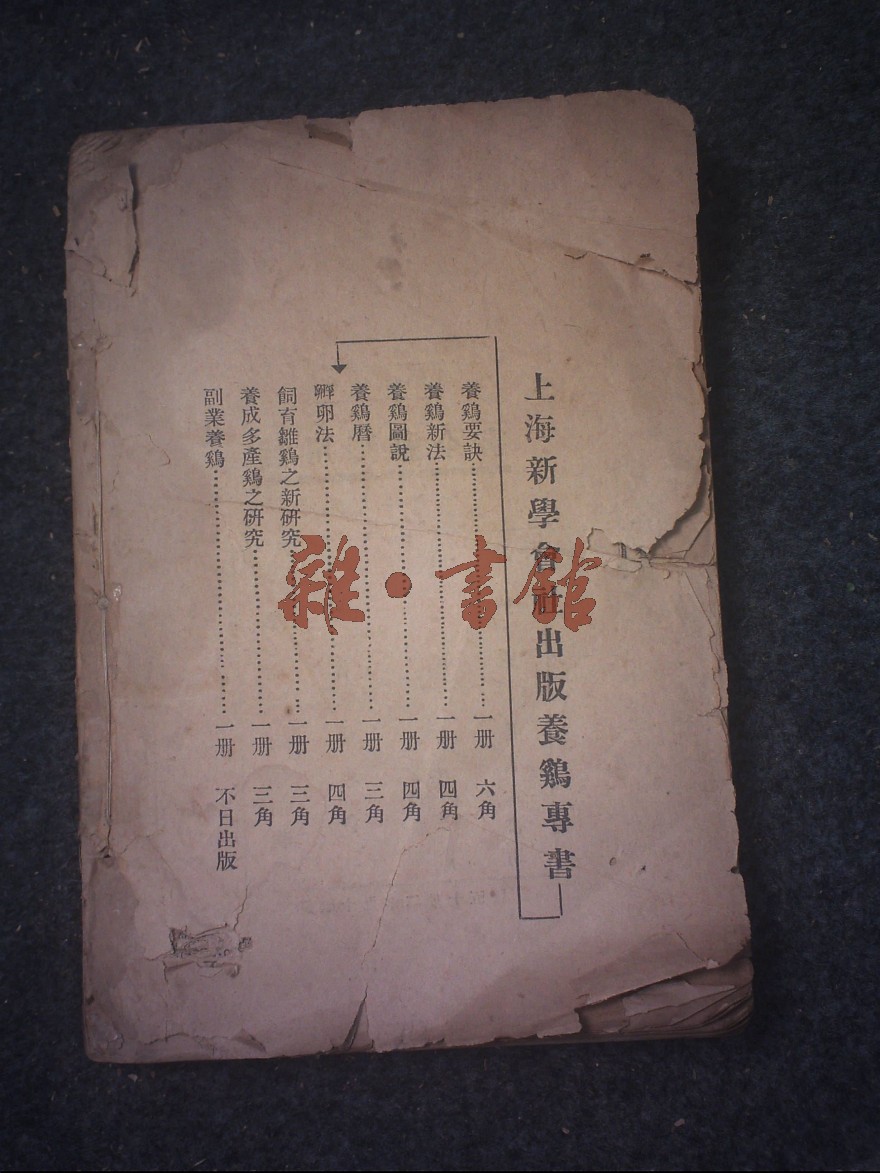 上海新學會社出版養鷄專書
養鷄要訣……一册 六角
養鷄新法……一册 四角
養鷄圖說……一册 四角
養鷄曆……一册 三角
孵卵法……一册 四角
飼育雛鷄之新研究……一册 三角
養成多產鷄之研究……一册 三角
副業養鷄……一册 不日出版
雜·書館